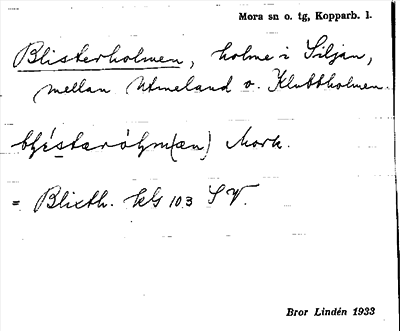 Mora sn o. tg, Kopparb. l.
Blisterholmen, holme i Siljan,
mellan Utmeland o. Klubbholmen.
Mork.
= Blixth. kbl 103 SV.
Bror Lindén 1933